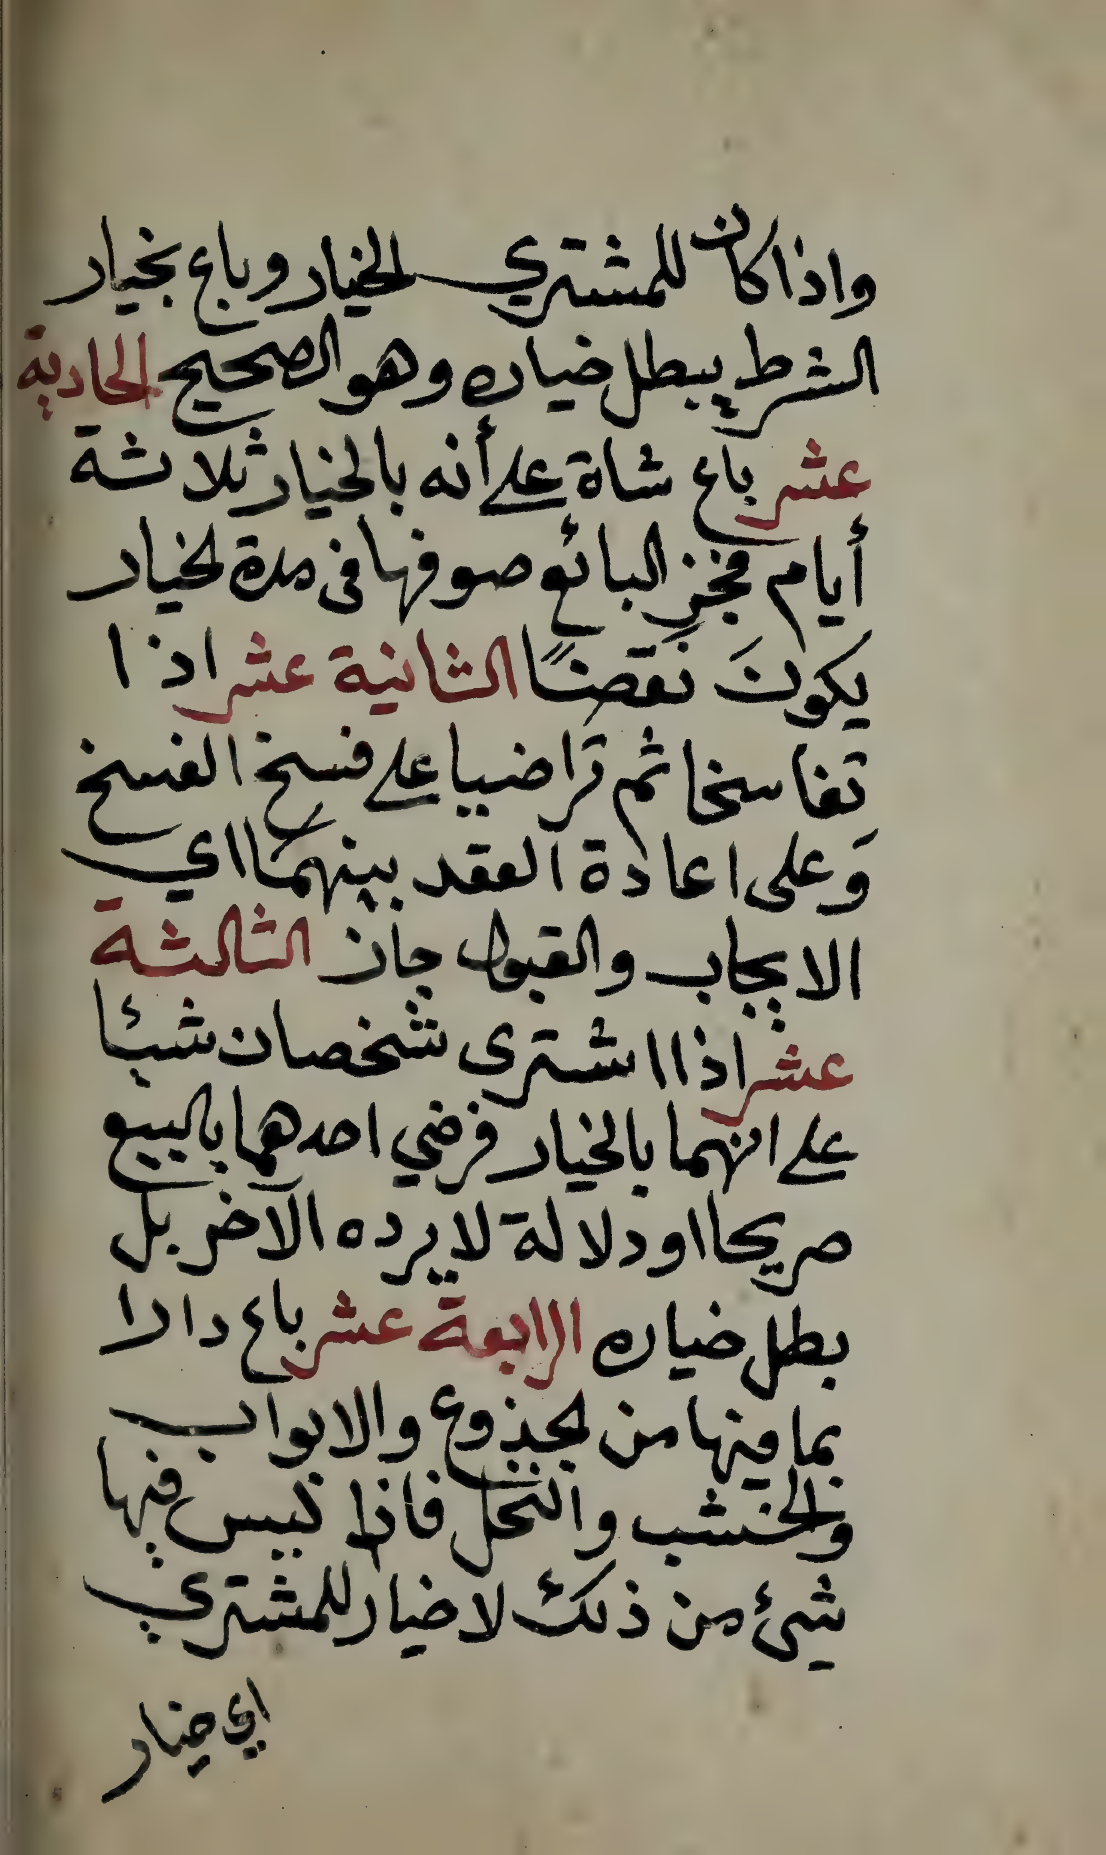 واذا كان للمشتري الخيار وباع بخيار
الشرط يبطل خياره وهو الصحيح الحادية
عشر باع شاة على أنه بالخيار ثلاثة
أيام فجز البائع صوفها فى مدة لخيار
يكونَ نقصنًا الثانية عشر اذا
تفاسخا ثم تراضيا على فسخ الفسخ
وَعلى اعادة العقد بينهما اي
الايجاب والقبول جاز الثالثة
عشر اذا اشترى شخصان شيئا
على انهما بالخيار فرضي احدهما بالبيع
صريحا او دلالة لا يرده الآخر بل
بطل خياره الرابعة عشر باع دارا
بما فيها من لجذوع والابواب
ولخشب والنخل فاذا ليس فيها
شيئ من ذلك لا خيار للمشتري
اي خيار